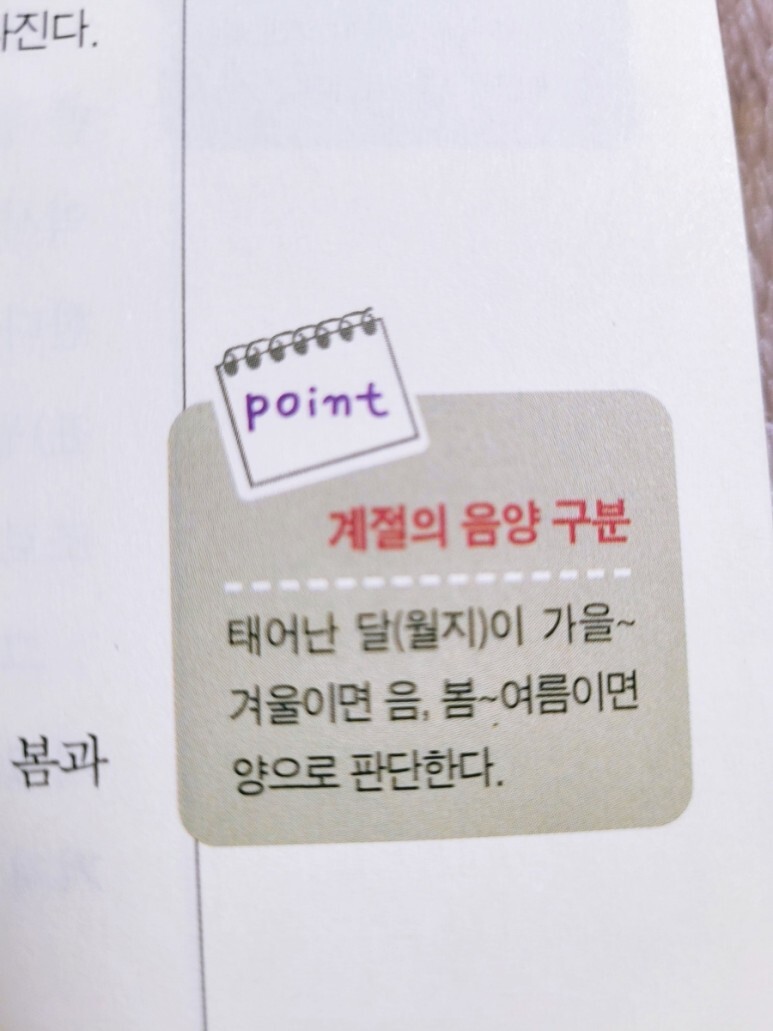 point
계절의 음양 구분
태어난 달(월지)이 가을~
겨울이면 음, 봄~여름이면
양으로 판단한다.
봄과